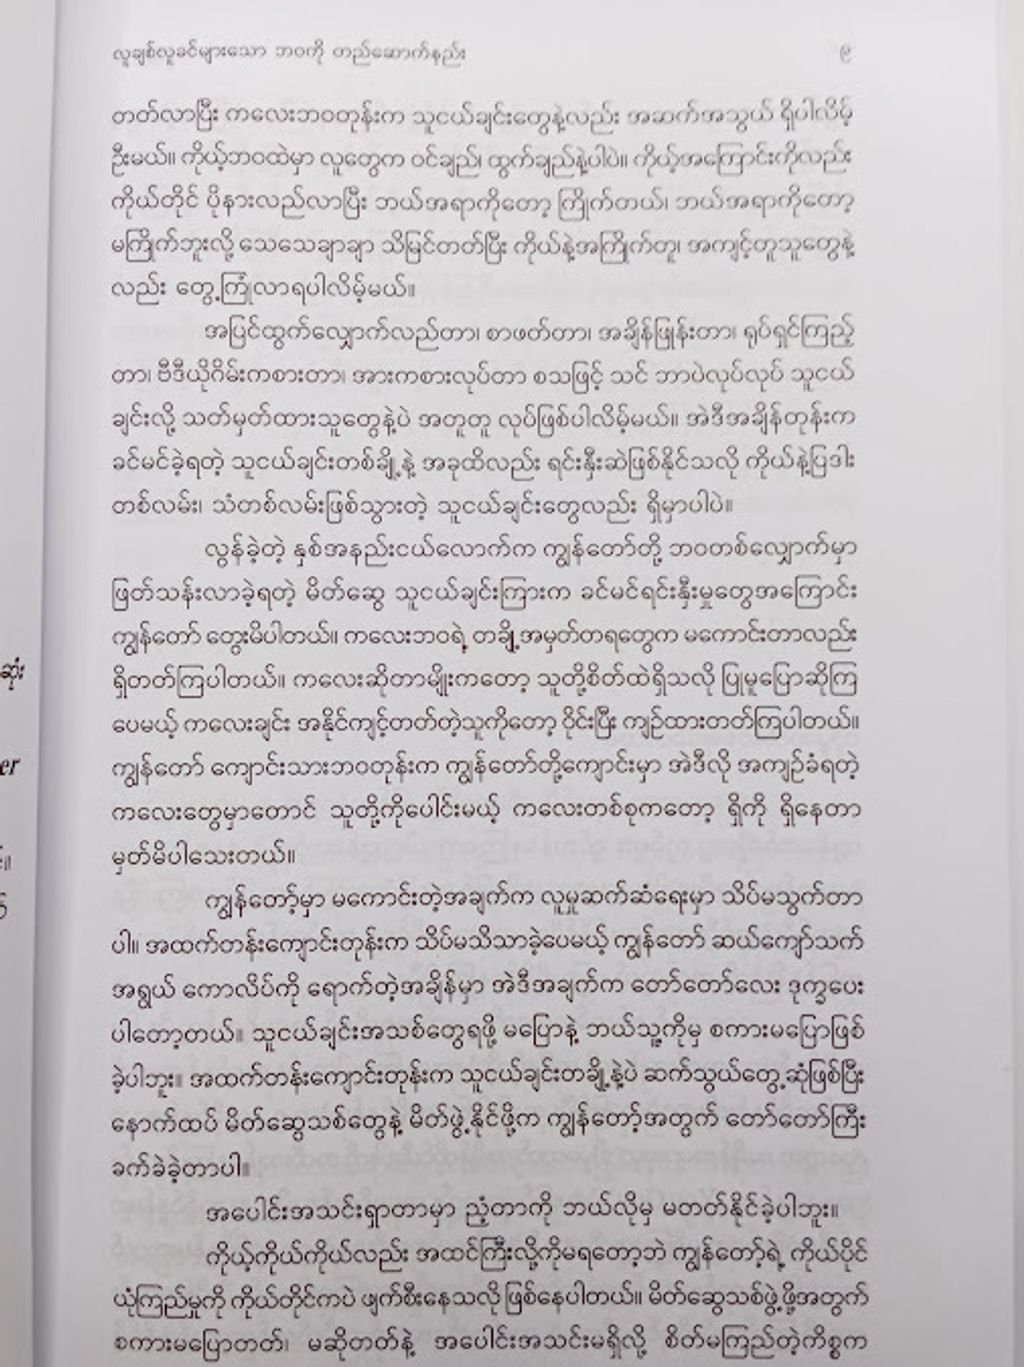 လူချစ်လူခင်များသော ဘဝကို တည်ဆောက်နည်း ၉
တတ်လာပြီး ကလေးဘဝတုန်းက သူငယ်ချင်းတွေနဲ့လည်း အဆက်အသွယ် ရှိပါလိမ့်
ဦးမယ်။ ကိုယ့်ဘဝထဲမှာ လူတွေက ဝင်ချည်၊ ထွက်ချည်နဲ့ပါပဲ။ ကိုယ့်အကြောင်းကိုလည်း
ကိုယ်တိုင် ပိုနားလည်လာပြီး ဘယ်အရာကိုတော့ ကြိုက်တယ်၊ ဘယ်အရာကိုတော့
မကြိုက်ဘူးလို့ သေသေချာချာ သိမြင်တတ်ပြီး ကိုယ်နဲ့အကြိုက်တူ၊ အကျင့်တူသူတွေနဲ့
လည်း တွေ့ကြုံလာရပါလိမ့်မယ်။
အပြင်ထွက်လျှောက်လည်တာ၊ စာဖတ်တာ၊ အချိန်ဖြုန်းတာ၊ ရုပ်ရှင်ကြည့်
တာ၊ ဗီဒီယိုဂိမ်းကစားတာ၊ အားကစားလုပ်တာ စသဖြင့် သင် ဘာပဲလုပ်လုပ် သူငယ်
ချင်းလို့ သတ်မှတ်ထားသူတွေနဲ့ပဲ အတူတူ လုပ်ဖြစ်ပါလိမ့်မယ်။ အဲဒီအချိန်တုန်းက
ခင်မင်ခဲ့ရတဲ့ သူငယ်ချင်းတစ်ချို့နဲ့ အခုထိလည်း ရင်းနှီးဆဲဖြစ်နိုင်သလို ကိုယ်နဲ့ပြဒါး
တစ်လမ်း၊ သံတစ်လမ်းဖြစ်သွားတဲ့ သူငယ်ချင်းတွေလည်း ရှိမှာပါပဲ။
လွန်ခဲ့တဲ့ နှစ်အနည်းငယ်လောက်က ကျွန်တော်တို့ ဘဝတစ်လျှောက်မှာ
ဖြတ်သန်းလာခဲ့ရတဲ့ မိတ်ဆွေ သူငယ်ချင်းကြားက ခင်မင်ရင်းနှီးမှုတွေအကြောင်း
ကျွန်တော် တွေးမိပါတယ်။ ကလေးဘဝရဲ့ တချို့အမှတ်တရတွေက မကောင်းတာလည်း
ရှိတတ်ကြပါတယ်။ ကလေးဆိုတာမျိုးကတော့ သူတို့စိတ်ထဲရှိသလို ပြုမူပြောဆိုကြ
ပေမယ့် ကလေးချင်း အနိုင်ကျင့်တတ်တဲ့သူကိုတော့ ဝိုင်းပြီး ကျဉ်ထားတတ်ကြပါတယ်။
ကျွန်တော် ကျောင်းသားဘဝတုန်းက ကျွန်တော်တို့ကျောင်းမှာ အဲဒီလို အကျဉ်ခံရတဲ့
ကလေးတွေမှာတောင် သူတို့ကိုပေါင်းမယ့် ကလေးတစ်စုကတော့ ရှိကို ရှိနေတာ
မှတ်မိပါသေးတယ်။
ကျွန်တော့်မှာ မကောင်းတဲ့အချက်က လူမှုဆက်ဆံရေးမှာ သိပ်မသွက်တာ
ပါ။ အထက်တန်းကျောင်းတုန်းက သိပ်မသိသာခဲ့ပေမယ့် ကျွန်တော် ဆယ်ကျော်သက်
အရွယ် ကောလိပ်ကို ရောက်တဲ့အချိန်မှာ အဲဒီအချက်က တော်တော်လေး ဒုက္ခပေး
ပါတော့တယ်။ သူငယ်ချင်းအသစ်တွေရဖို့ မပြောနဲ့ ဘယ်သူ့ကိုမှ စကားမပြောဖြစ်
ခဲ့ပါဘူး။ အထက်တန်းကျောင်းတုန်းက သူငယ်ချင်းတချို့နဲ့ပဲ ဆက်သွယ်တွေ့ဆုံဖြစ်ပြီး
နောက်ထပ် မိတ်ဆွေသစ်တွေနဲ့ မိတ်ဖွဲ့နိုင်ဖို့က ကျွန်တော့်အတွက် တော်တော်ကြီး
ခက်ခဲခဲ့တာပါ။
အပေါင်းအသင်းရှာတာမှာ ညံ့တာကို ဘယ်လိုမှ မတတ်နိုင်ခဲ့ပါဘူး။
ကိုယ့်ကိုယ်ကိုယ်လည်း အထင်ကြီးလို့ကိုမရတော့ဘဲ ကျွန်တော့်ရဲ့ ကိုယ်ပိုင်
ယုံကြည်မှုကို ကိုယ်တိုင်ကပဲ ဖျက်စီးနေသလိုဖြစ်နေပါတယ်။ မိတ်ဆွေသစ်ဖွဲ့ဖို့အတွက်
စကားမပြောတတ်၊ မဆိုတတ်နဲ့ အပေါင်းအသင်းမရှိလို့ စိတ်မကြည်တဲ့ကိစ္စက